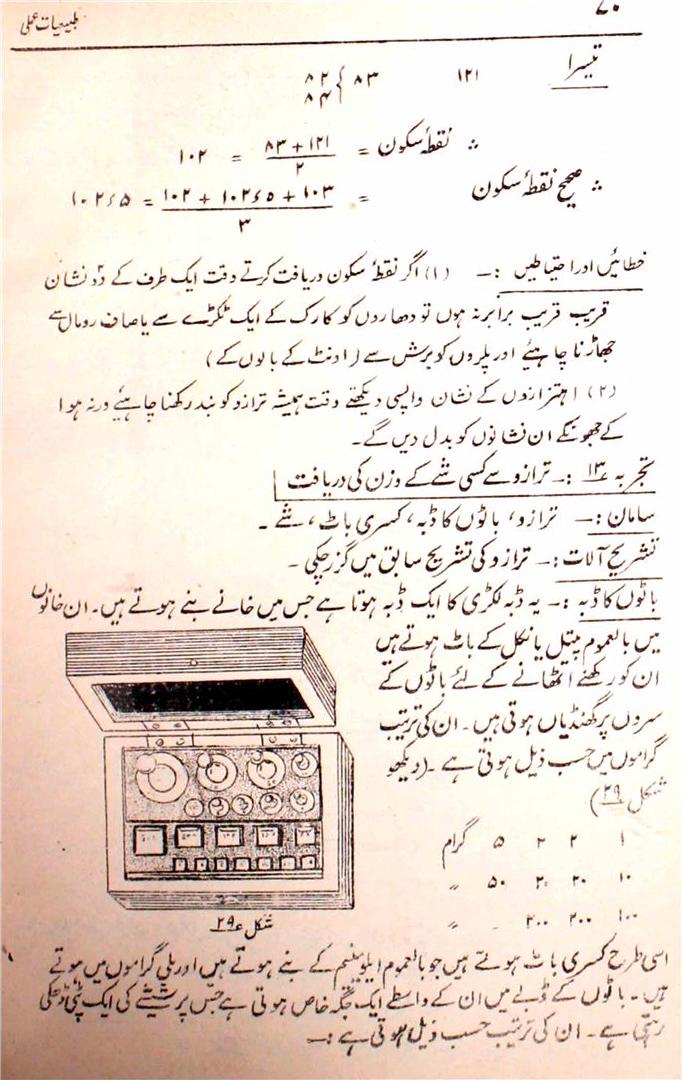 ۷۰
طبیعیات عملی
تیسرا ۱۲۱ ۸۲ } ۸۳
۸۴
∴ نقطۂ سکون = ۸۳ + ۱۲۱ / ۲ = ۱۰۲
∴ صحیح نقطۂ سکون = ۱۰۲ + ۱۰۲٫۵ + ۱۰۳ / ۳ = ۱۰۲٫۵
خطائیں اور احتیاطیں :۔ (۱) اگر نقطۂ سکون دریافت کرتے وقت ایک طرف کے دو نشان
قریب قریب برابر نہ ہوں تو دھاردوں کو کارک کے ایک ٹکڑے سے یا صاف رومال سے
جھاڑنا چاہیئے اور پلڑوں کو برش سے (اونٹ کے بالوں کے)
(۲) اہتزازوں کے نشان واپسی دیکھتے وقت ہمیشہ ترازو کو بند رکھنا چاہیئے ورنہ ہوا
کے جھونکے ان نشانوں کو بدل دیں گے۔
تجربہ ۱۳ :۔ ترازو سے کسی شے کے وزن کی دریافت
سامان :۔ ترازو، باٹوں کا ڈبہ، کسری باٹ، شے ۔
تشریح آلات :۔ ترازو کی تشریح سابق میں گزر چکی ۔
باٹوں کا ڈبہ :۔ یہ ڈبہ لکڑی کا ایک ڈبہ ہوتا ہے جس میں خانے بنے ہوتے ہیں۔ ان خانوں
میں بالعموم پیتل یا نکل کے باٹ ہوتے ہیں
ان کو رکھنے اٹھانے کے لئے باٹوں کے
سروں پر گھنڈیاں ہوتی ہیں۔ ان کی ترتیب
گراموں میں حسب ذیل ہوتی ہے ۔ (دیکھو
شکل ۲۹)
۱ ۲ ۲ ۵ گرام
۱۰ ۲۰ ۲۰ ۵۰ 〃
۱۰۰ ۲۰۰ ۲۰۰ ۔ 〃
شکل ۲۹
اسی طرح کسری باٹ ہوتے ہیں جو بالعموم ایلومینیم کے بنے ہوتے ہیں اور ملی گراموں میں ہوتے
ہیں ۔ باٹوں کے ڈبے میں ان کے واسطے ایک جگہ خاص ہوتی ہے جس پر شیشے کی ایک پٹی ڈھکی
رہتی ہے ۔ ان کی ترتیب حسب ذیل ہوتی ہے :۔